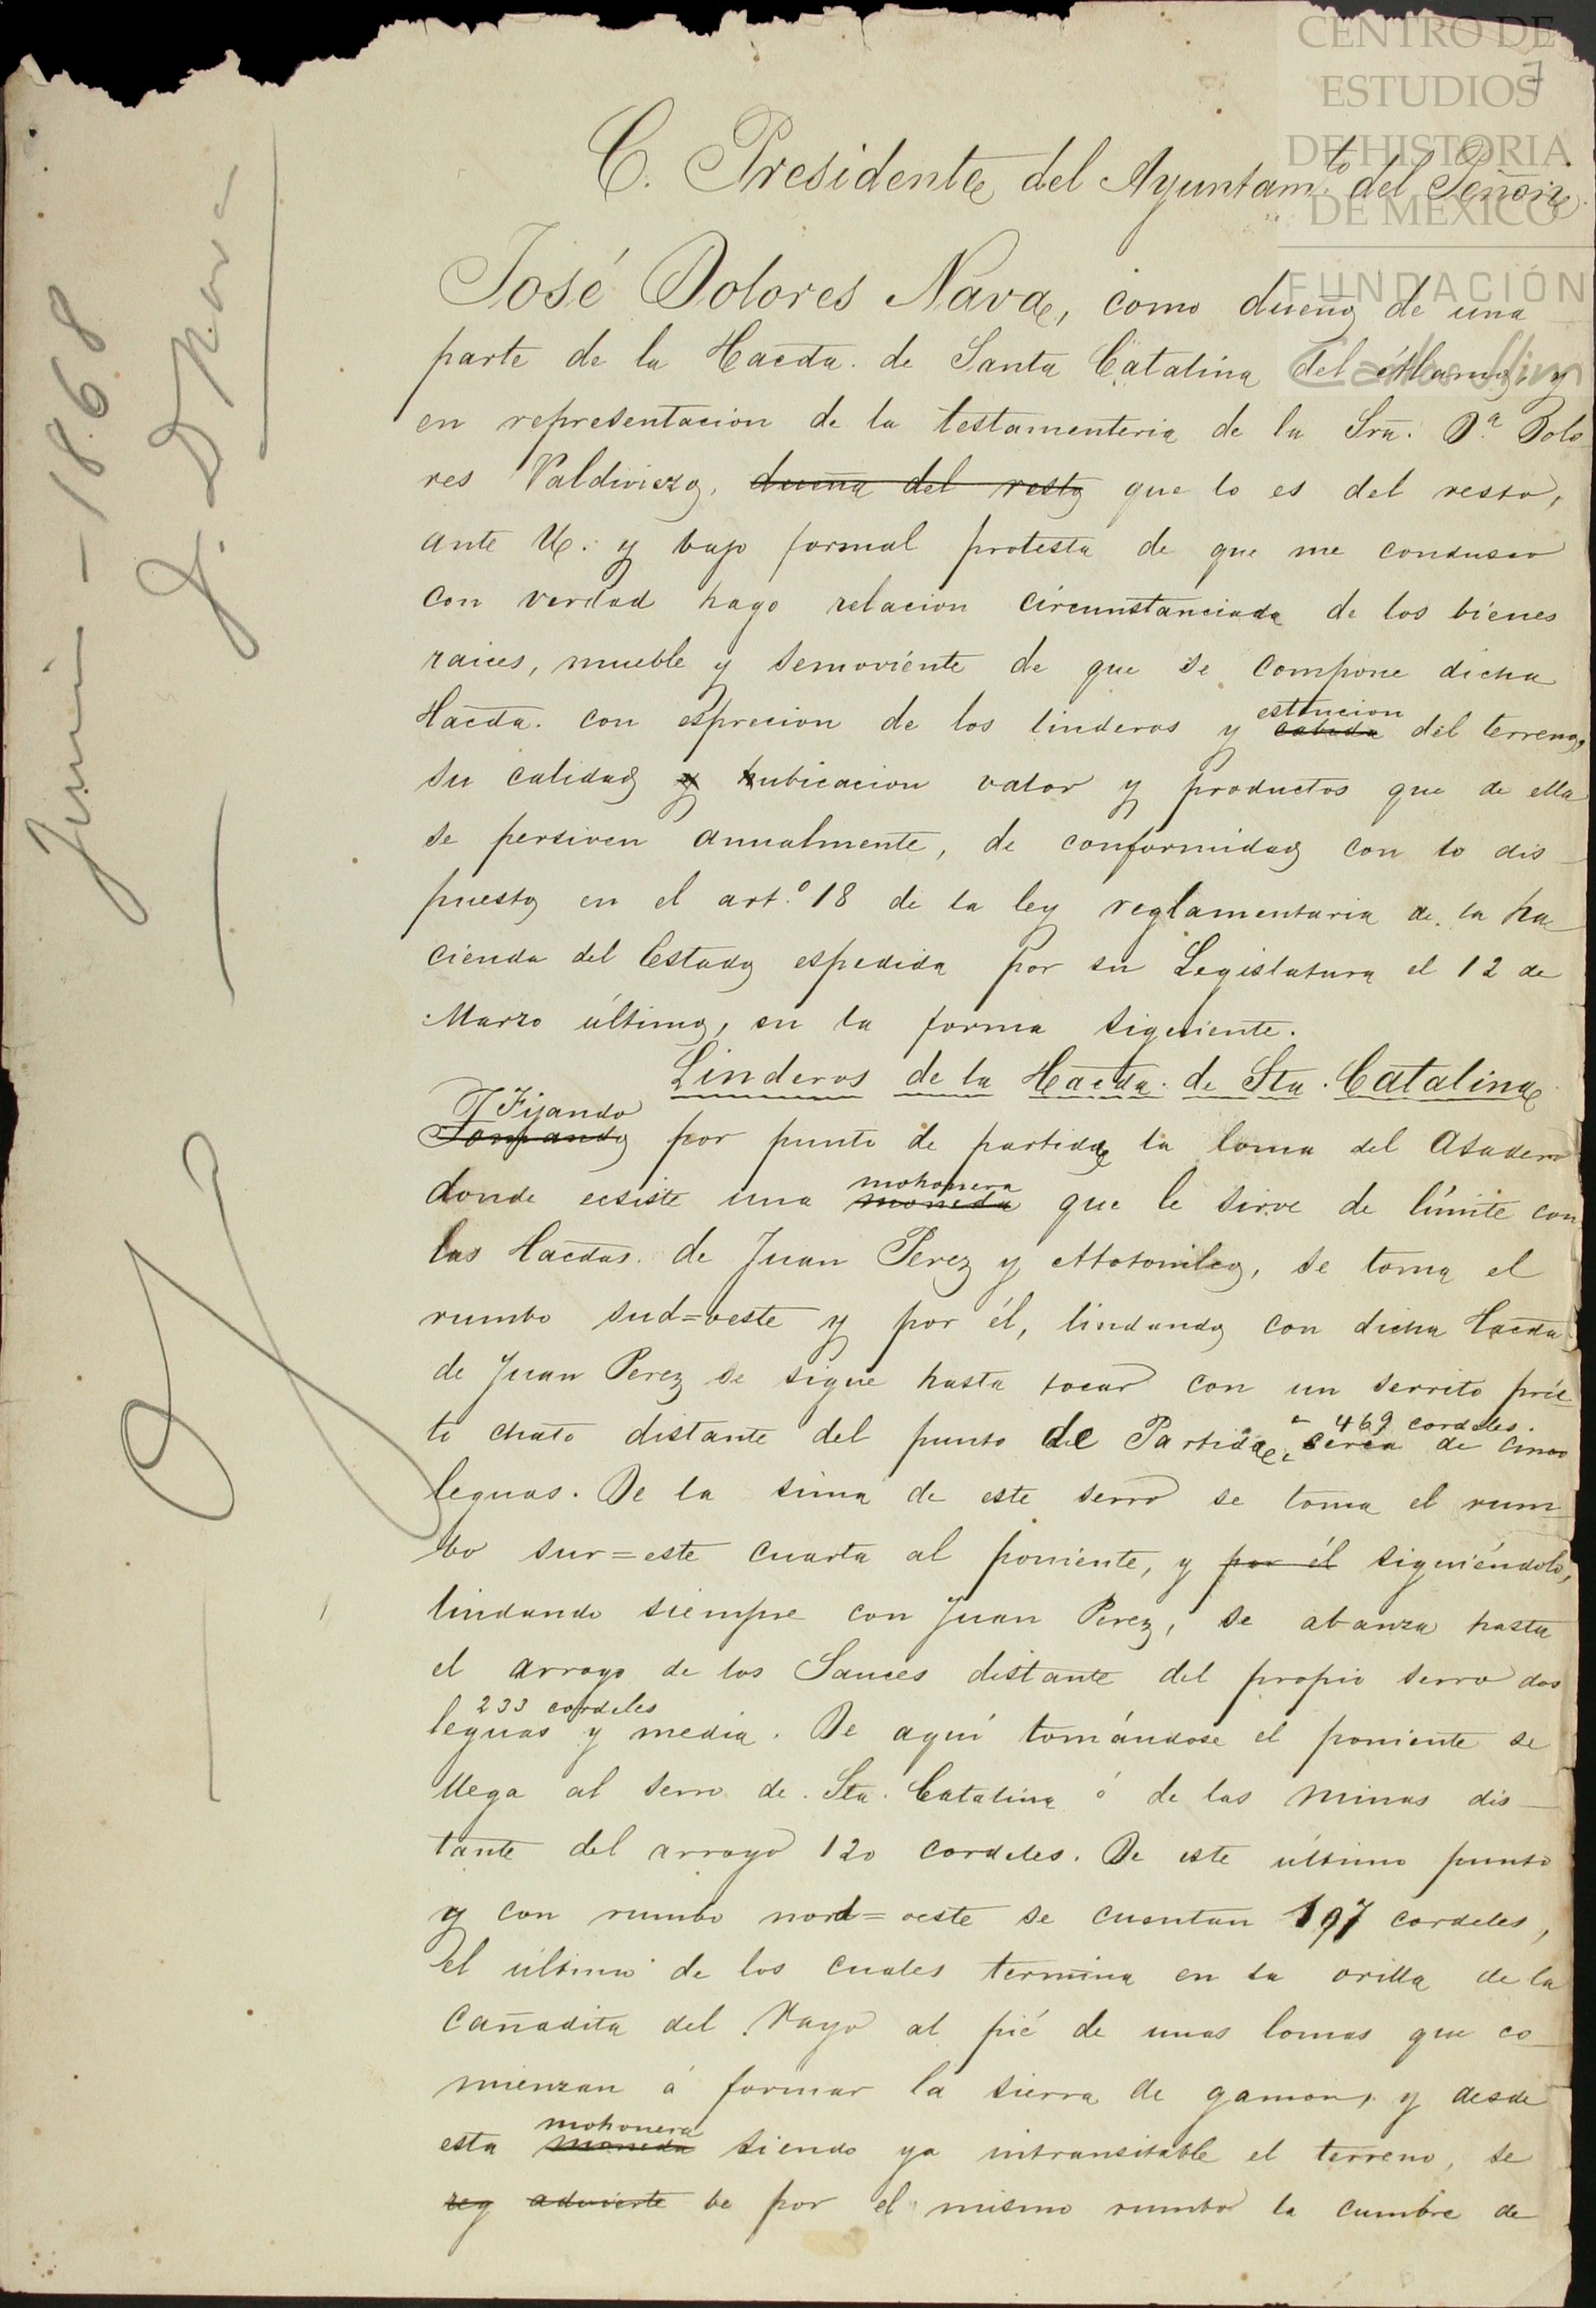 CENTRO DE
ESTUDIOS
DE HISTORIA
DE MÉXICO
FUNDACIÓN
Carlos Slim
7
Junio - 1868
J. D Nava
C. Presidente del Ayuntam.to del Peñon
José Dolores Nava, como dueño de una
parte de la Hacda. de Santa Catalina del Alamo, y
en representacion de la testamenteria de la Sra. D.a Dolo
res Valdiviezo, dueña del resto que lo es del resto,
ante U. y bajo formal protesta de que me condusco
con verdad hago relacion circunstanciada de los bienes
raices, mueble y semoviente de que se compone dicha
Hacda. con esprecion de los linderos y cabida estencion del terreno,
su calidad y hubicacion valor y productos que de ella
se persiven anualmente, de conformidad con lo dis
puesto en el art.o 18 de la ley reglamentaria de la ha
cienda del Estado espedida por su Legislatura el 12 de
Marzo último, en la forma siguiente.
Linderos de la Hacda. de Sta. Catalina
Fijando
Tomando por punto de partida la loma del Asadero
donde ecsiste una moneda mohonera que le sirve de límite con
las Hacdas. de Juan Perez y Atotonilco, se toma el
rumbo sud=oeste y por él, lindando con dicha Hacda
de Juan Perez se sigue hasta tocar con un serrito prie
to chato distante del punto de Partida, serca de cinco
469 cordeles.
leguas. De la sima de este serro se toma el rum
bo sur=este cuarta al poniente, y por él siguiéndolo,
lindando siempre con Juan Perez, se abanza hasta
el arroyo de los Sauces distante del propio serro dos
233 cordeles
leguas y media. De aquí tomándose el poniente se
llega al serro de Sta. Catalina ó de las minas dis
tante del arroyo 120 cordeles. De este último punto
y con rumbo nord=oeste se cuentan 197 cordeles,
el último de los cuales termina en la orilla de la
Cañadita del Rayo al pié de unas lomas que co
mienzan á formar la sierra de gamon, y desde
esta moneda mohonera siendo ya intransitable el terreno, se
reg advierte be por el mismo rumbo la cumbre de